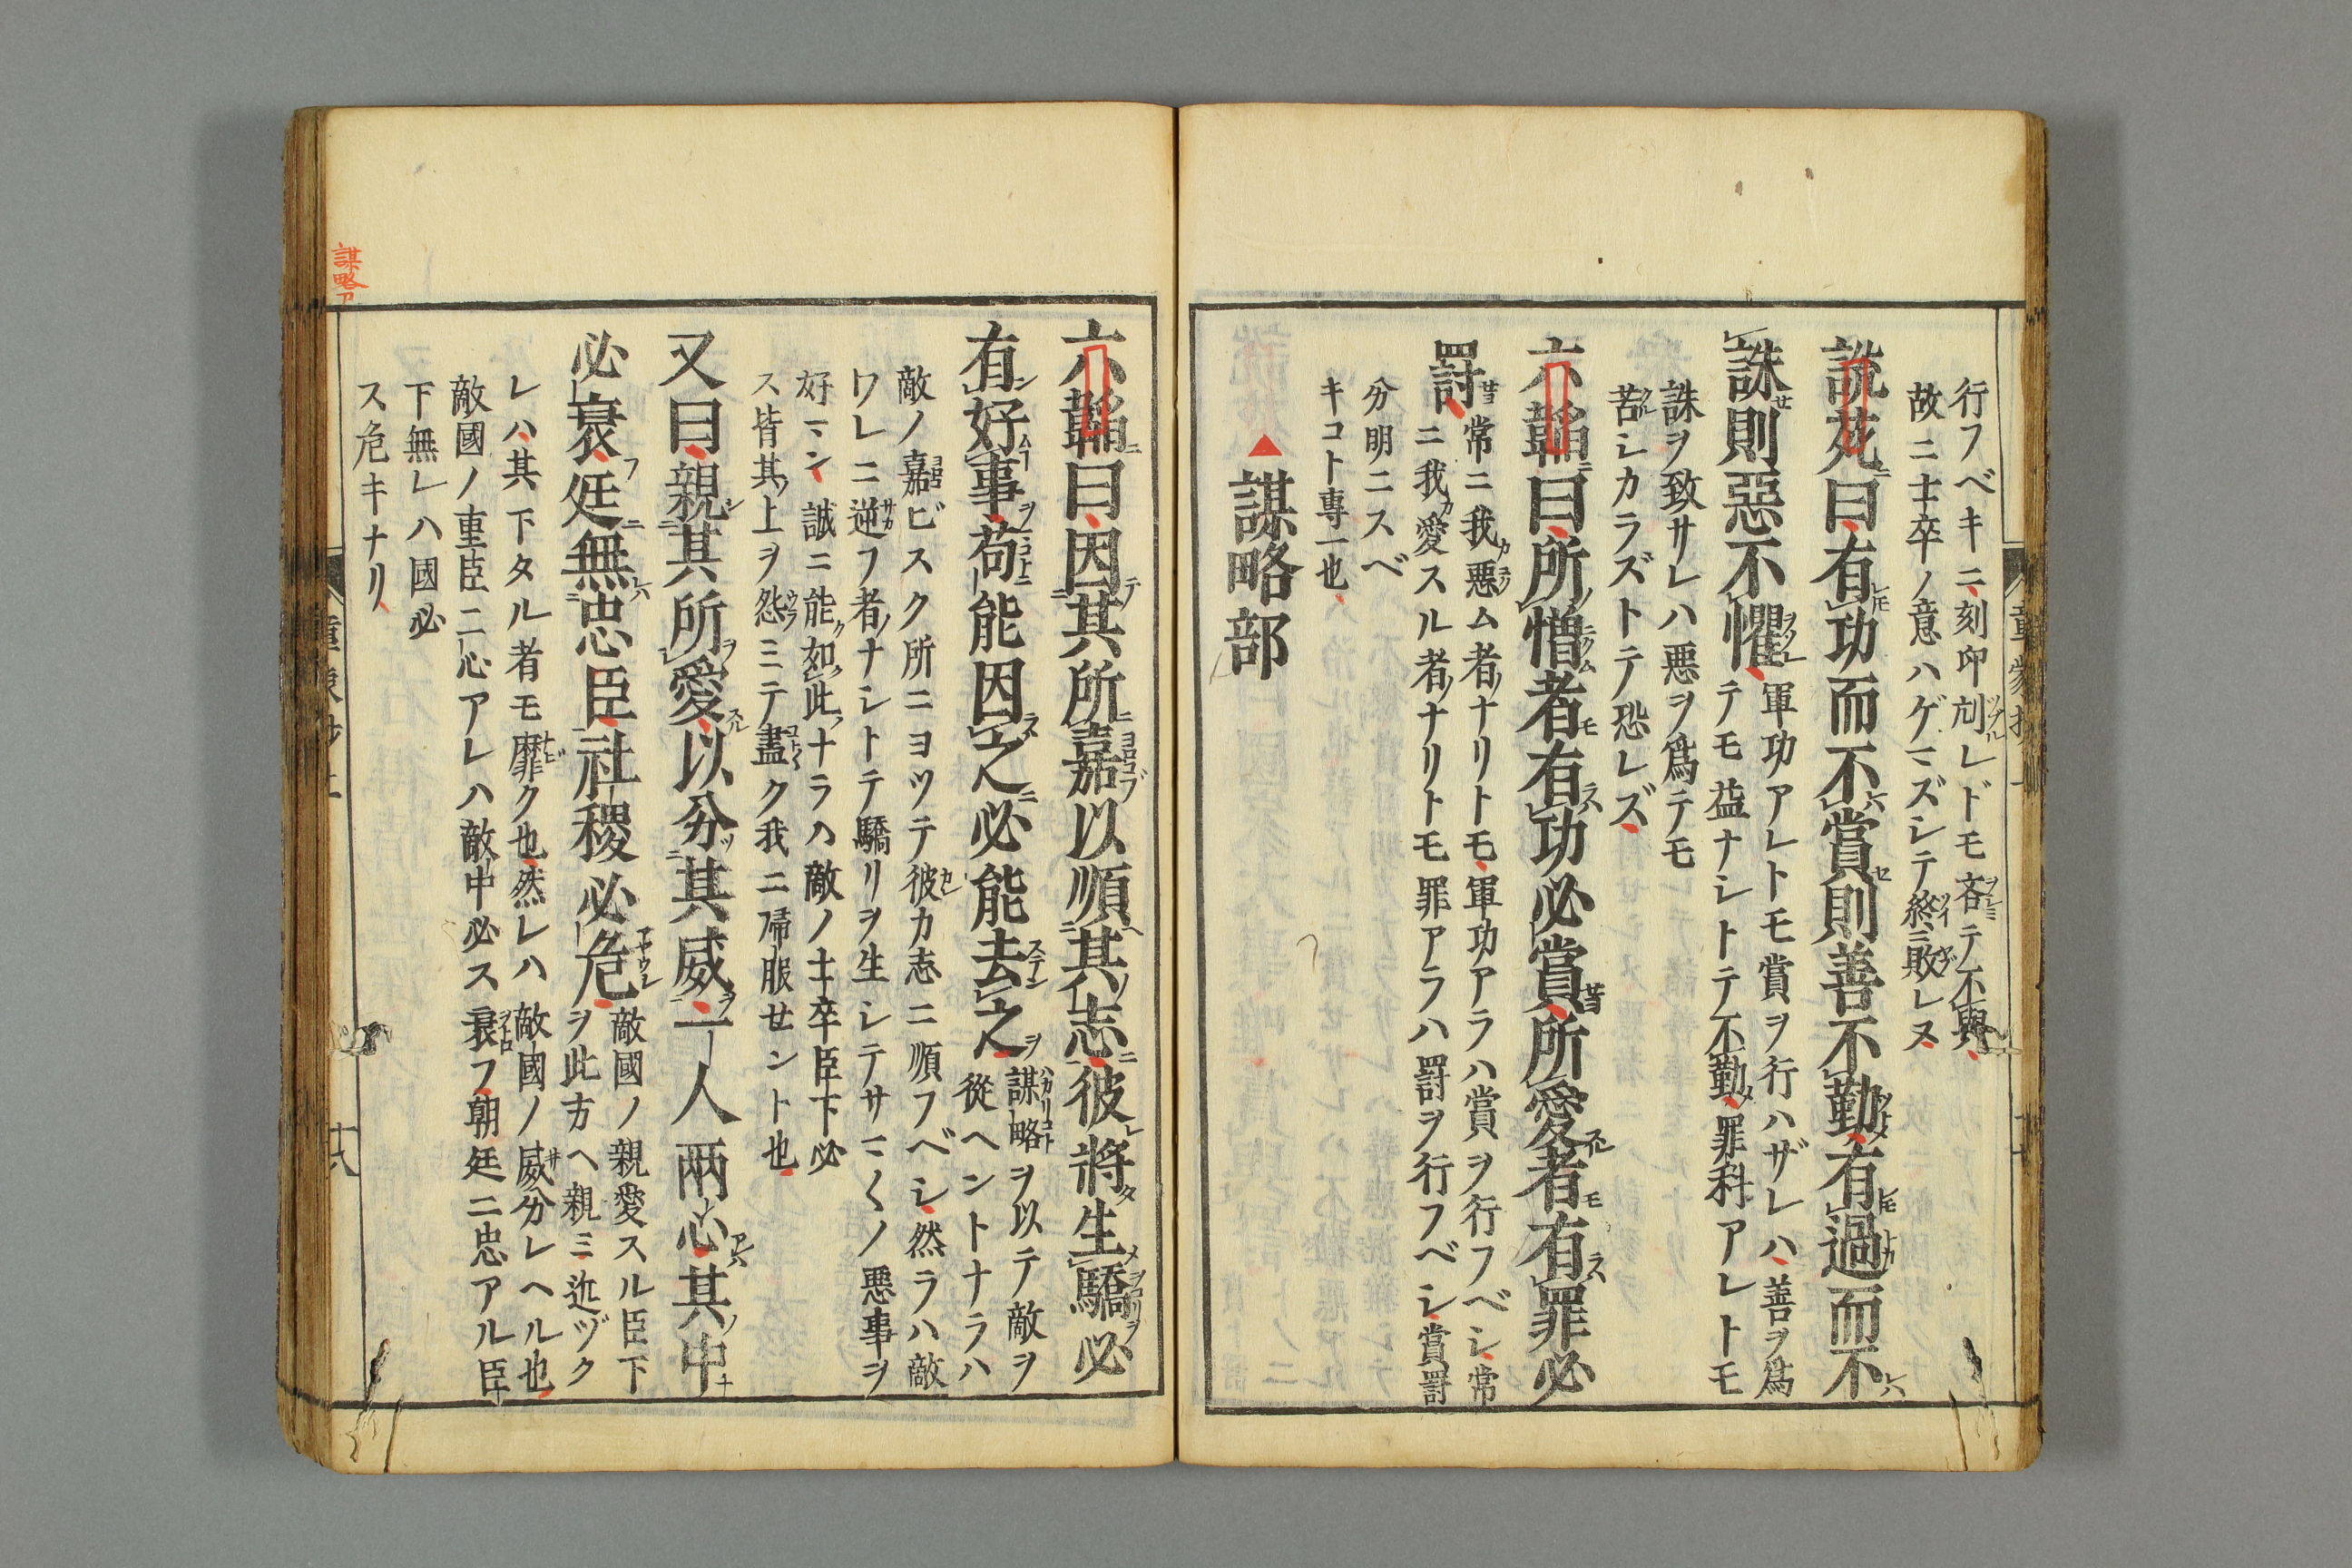 行フベキニ刻印刓レドモ吝テ不與
故ニ士卒ノ意ハゲマズシテ終ニ敗レヌ
説苑曰有功而不賞則善不勤有過而不
誅則惡不懼
軍功アレトモ賞ヲ行ハザレハ善ヲ爲
テモ益ナシトテ不勤罪科アレトモ
誅ヲ致サレハ悪ヲ爲テモ
苦シカラズトテ恐レズ
六韜曰所憎者有功必賞所愛者有罪必
罰
常ニ我悪ム者ナリトモ軍功アラハ賞ヲ行フベシ常
ニ我愛スル者ナリトモ罪アラハ罰ヲ行フベシ賞罰
分明ニスベ
キコト專一也
謀略部
六韜曰因其所嘉以順其志彼將生驕必
有好事苟能因之必能去之
謀略ヲ以テ敵ヲ
從ヘントナラハ
敵ノ嘉ビスク所ニヨツテ彼カ志ニ順フベシ然ラハ敵
ワレニ逆フ者ナシトテ驕リヲ生シテサマ〱ノ悪事ヲ
好マン誠ニ能如此ナラハ敵ノ士卒臣下必
ス皆其上ヲ怨ミテ盡ク我ニ帰服セント也
又曰親其所愛以分其威一人兩心其中
必衰廷無忠臣社稷必危
敵國ノ親愛スル臣下
ヲ此方ヘ親ミ近ヅク
レハ其下タル者モ靡ク也然レハ敵國ノ威分レヘル也
敵國ノ重臣二心アレハ敵中必ス衰フ朝廷ニ忠アル臣
下無レハ國必
ス危キナリ
謀略ア